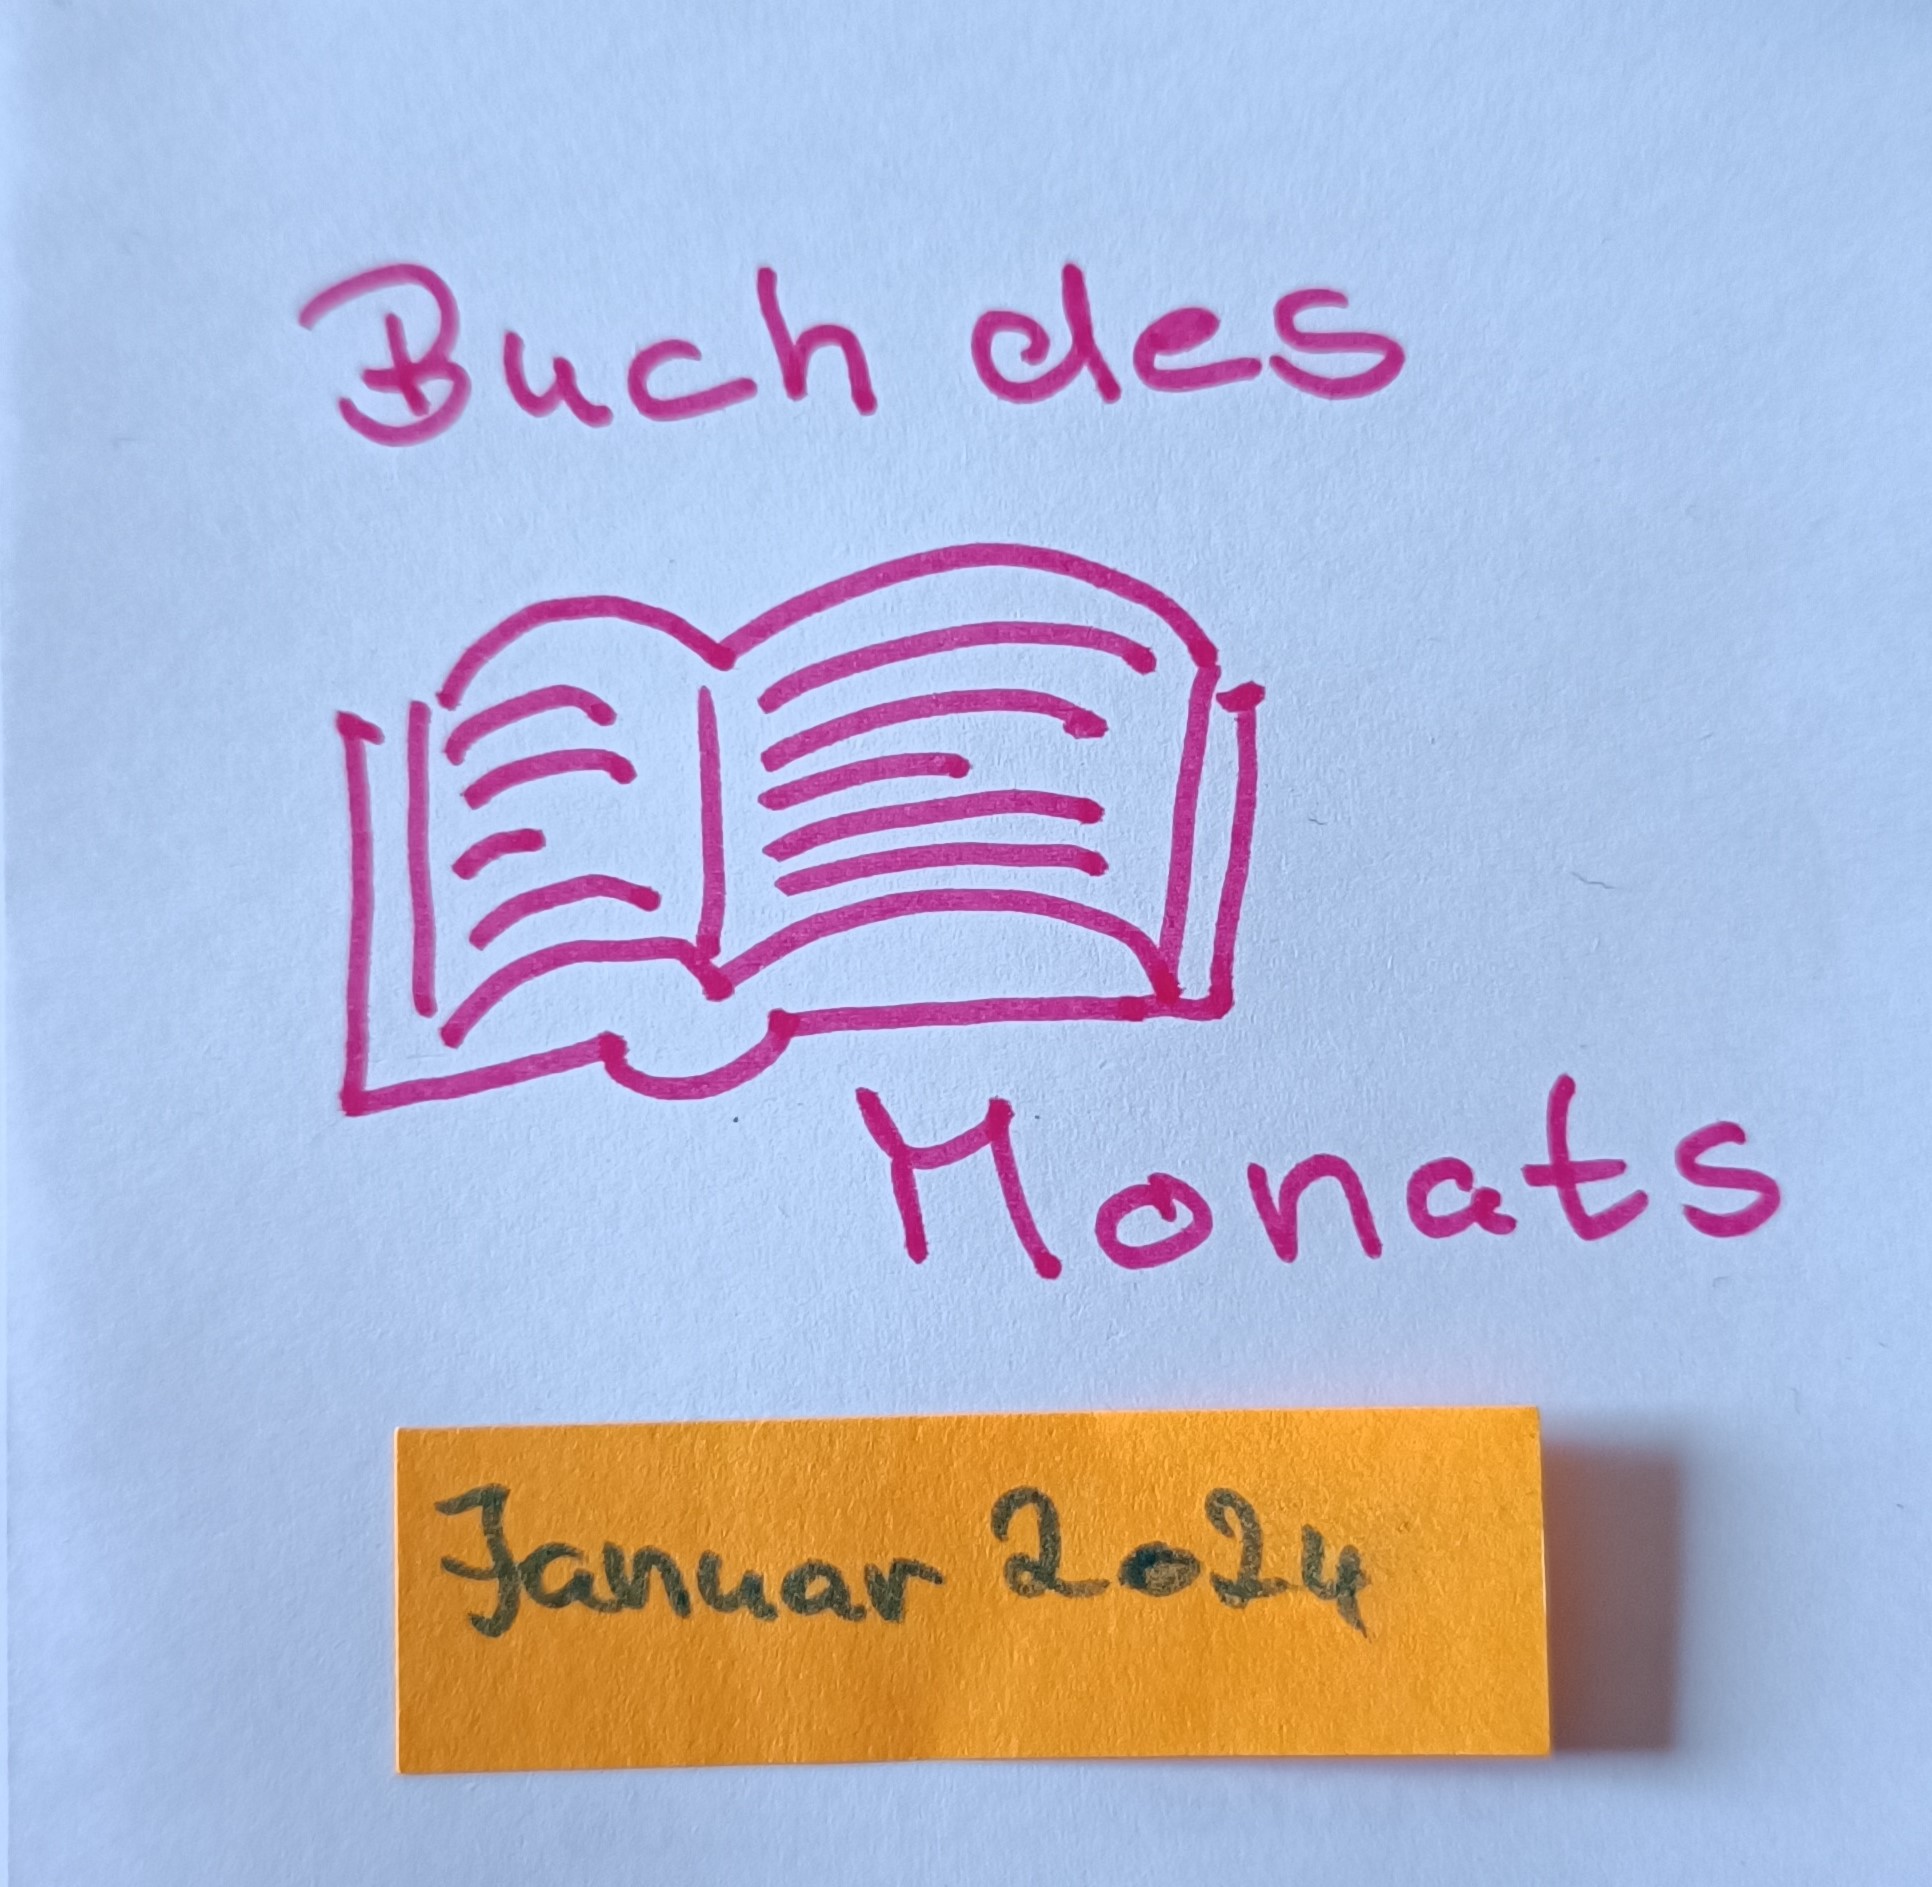 Buch des
Monats
Januar 2024